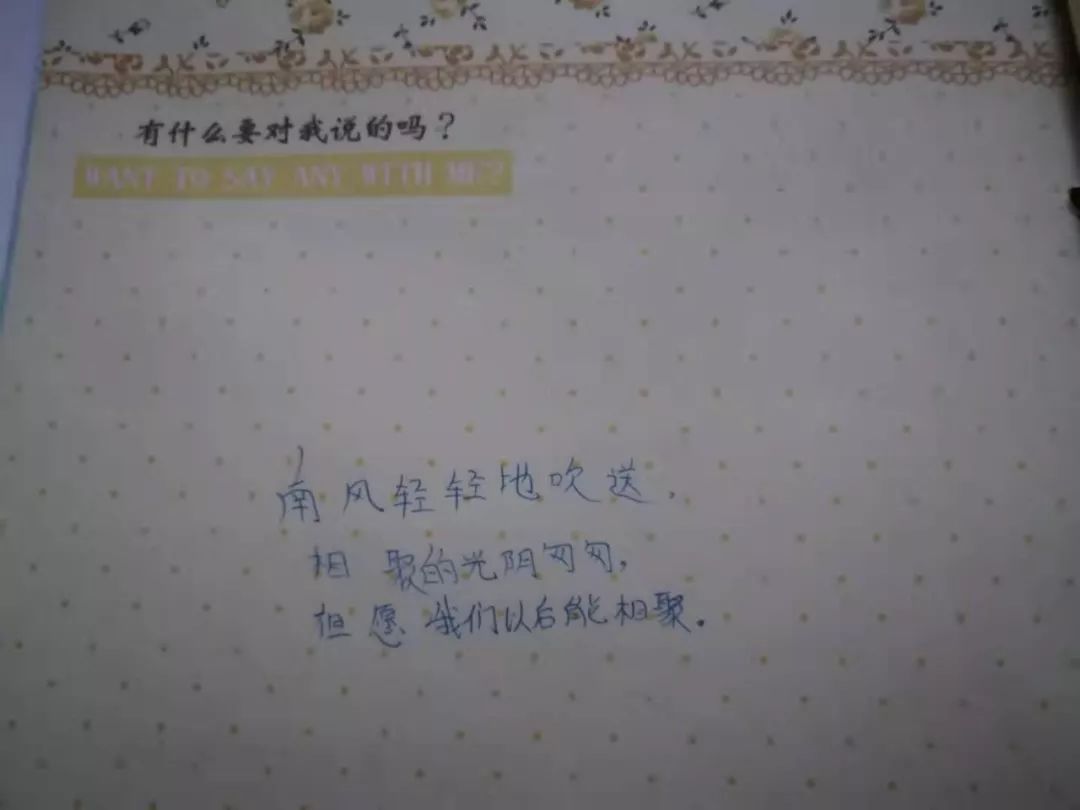 有什么要对我说的吗？
WANT TO SAY ANY WITH ME?
南风轻轻地吹送，
相聚的光阴匆匆，
但愿我们以后能相聚。